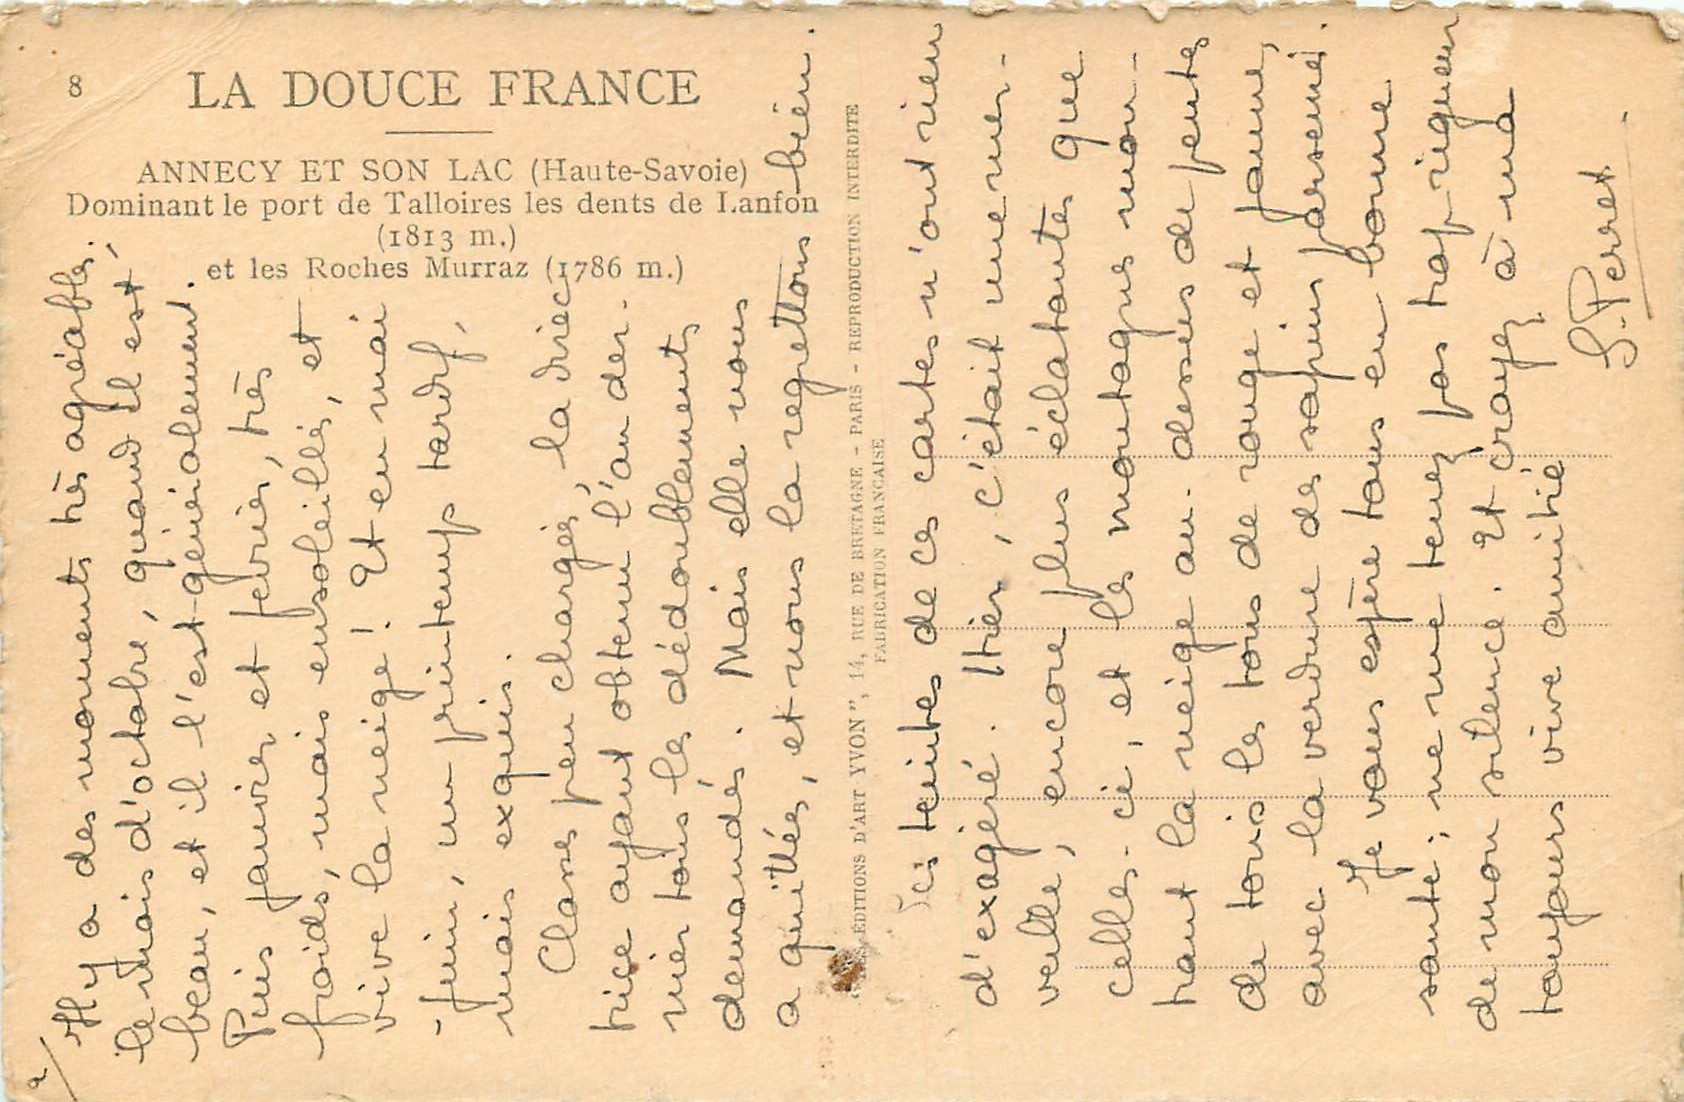 8
LA DOUCE FRANCE
ANNECY ET SON LAC (Haute-Savoie)
Dominant le port de Talloires les dents de Lanfon
(1813 m.)
et les Roches Murraz (1786 m.)
LES ÉDITIONS D'ART YVON", 14, RUE DE BRETAGNE - PARIS - REPRODUCTION INTERDITE
FABRICATION FRANÇAISE
a/
Il y a des moments très agréables.
le mois d'octobre, quand il est,
beau, et il l'est généralement.
Puis janvier et février, très
froids, mais ensoleillés, et
vive la neige ! Et en mai
- juin, un printemps tardif,
mais exquis.
Classes peu chargées, la direc
trice ayant obtenu l'an der-
nier tous les dédoublements
demandés. Mais elle nous
a quittés, et nous la regrettons bien.
Les teintes de ces cartes n'ont rien
d'exagéré. Hier, c'était une mer-
veille, encore plus éclatantes que
celles-ci, et les montagnes mon-
trant la neige au-dessus de pentes
de tous les tons de rouge et jaune,
avec la verdure des sapins parsemés.
Je vous espère tous en bonne
santé ; ne me tenez pas trop rigueur
de mon silence. Et croyez à ma
toujours vive amitié
S. Perret.